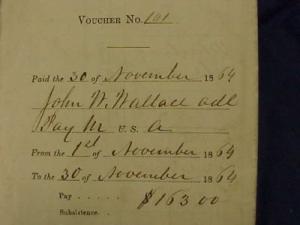 VOUCHER No. 101
Paid the 30 of November 1864
John W. Wallace adl
Pay M U.S. A
From the 1st of November 1864
To the 30 of November 1864
Pay . . . . . $163 00
Subsistence . .